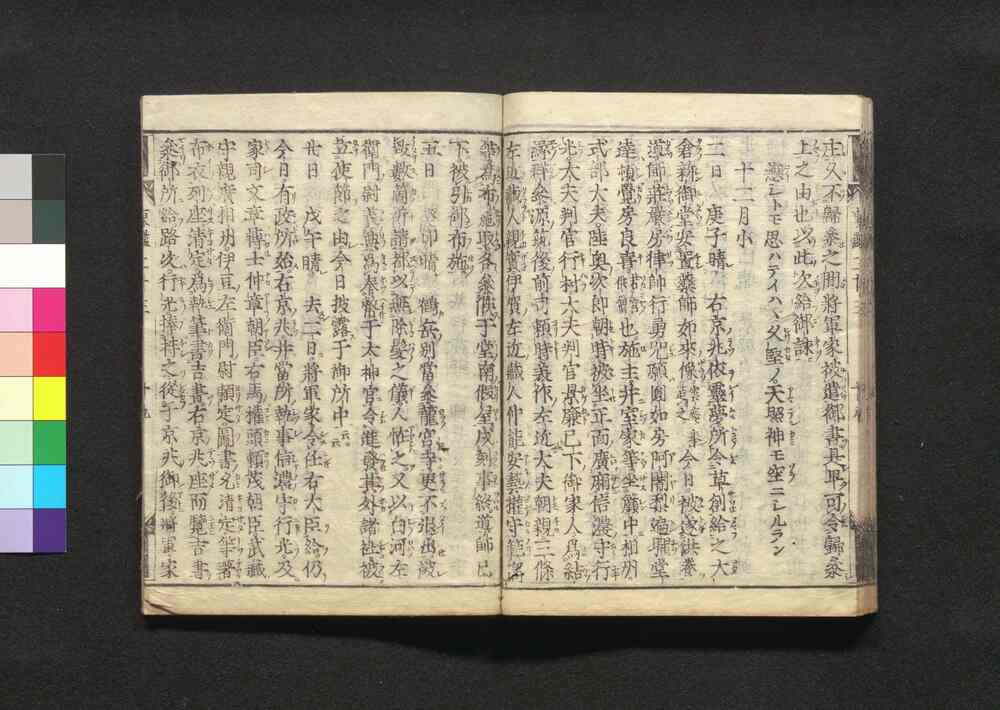 上之由也以此次給御詠
戀シトモ思ハテイハヽ久堅ノ天照神モ空ニシルラン
十二月小
二日 庚子晴 右京兆依靈夢所令草創給之大
倉新御堂安置藥師如來像 事今日被遂供養
導師莊嚴房律師行勇呪願圓如房阿闍梨遍曜堂
達頓覺房良喜 也施主并室家等坐簾中相州
式部大夫陸奥次郎朝時被坐正面廣廂信濃守行
光大夫判官行村大夫判官景廉已下御家人爲結
縁群參源筑後前司頼時義作左近大夫朝親三條
左近藏人親實伊賀左近藏人仲能安藝權守範高
等爲布施取各參候于堂南假屋戌刻事終導師已
下被引御布施
五日 鶴岳別當參籠宮寺更不退出凝
数
衛門尉義典爲奉幣于太神宮令進發其外諸社被
立使節之由今日披露于御所中云云
廿日 戊午晴 去二日將軍家令任右大臣給仍
今日有政所始右京兆并當所執事信濃守行光及
家司文章博士仲章朝臣右馬權頭頼茂朝臣武藏
守親廣相州伊豆左衛門尉頼定圖書允清定等著
布衣列座清定爲執筆書吉書右京兆座而覽吉書
參御所給路次行光捧持之從于京兆御後將軍家